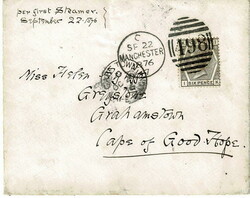 per first Steamer.
September 22 1876
C
SP 22
MANCHESTER
76
498
SIX PENCE
Miss Helen
Grahamstown
Cape of Good Hope.